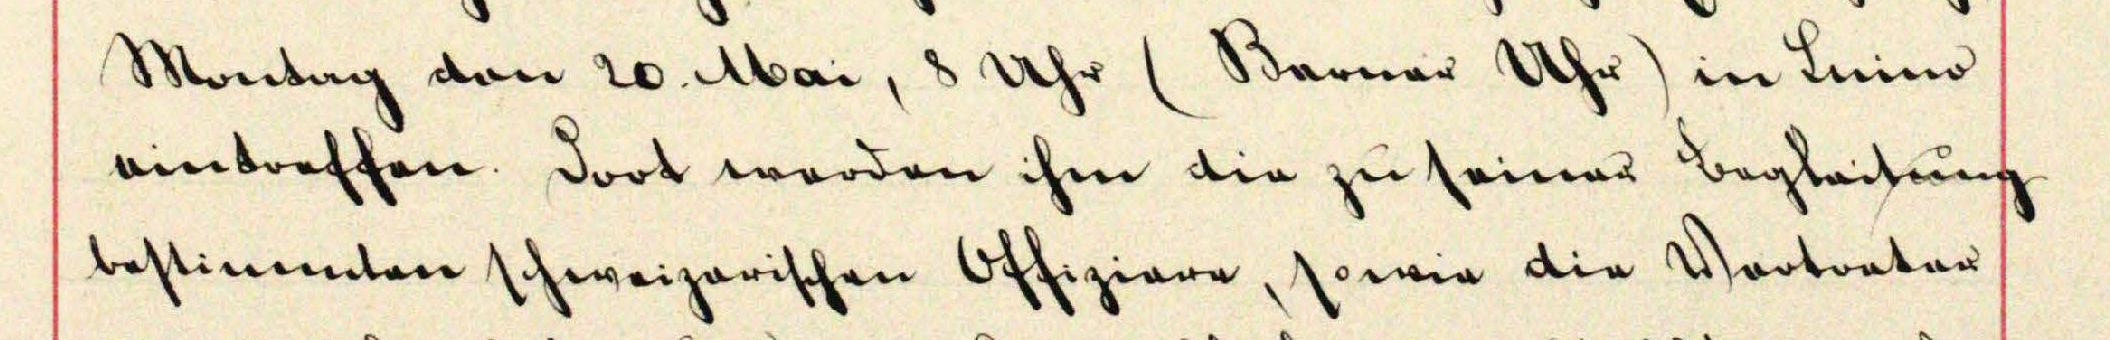 Montag den 20. Mai, 8 Uhr (Berner Uhr) in Luino
eintreffen. Dort werden ihm die zu seiner Begleitung
bestimmten schweizerischen Offiziere, sowie die Vertreter